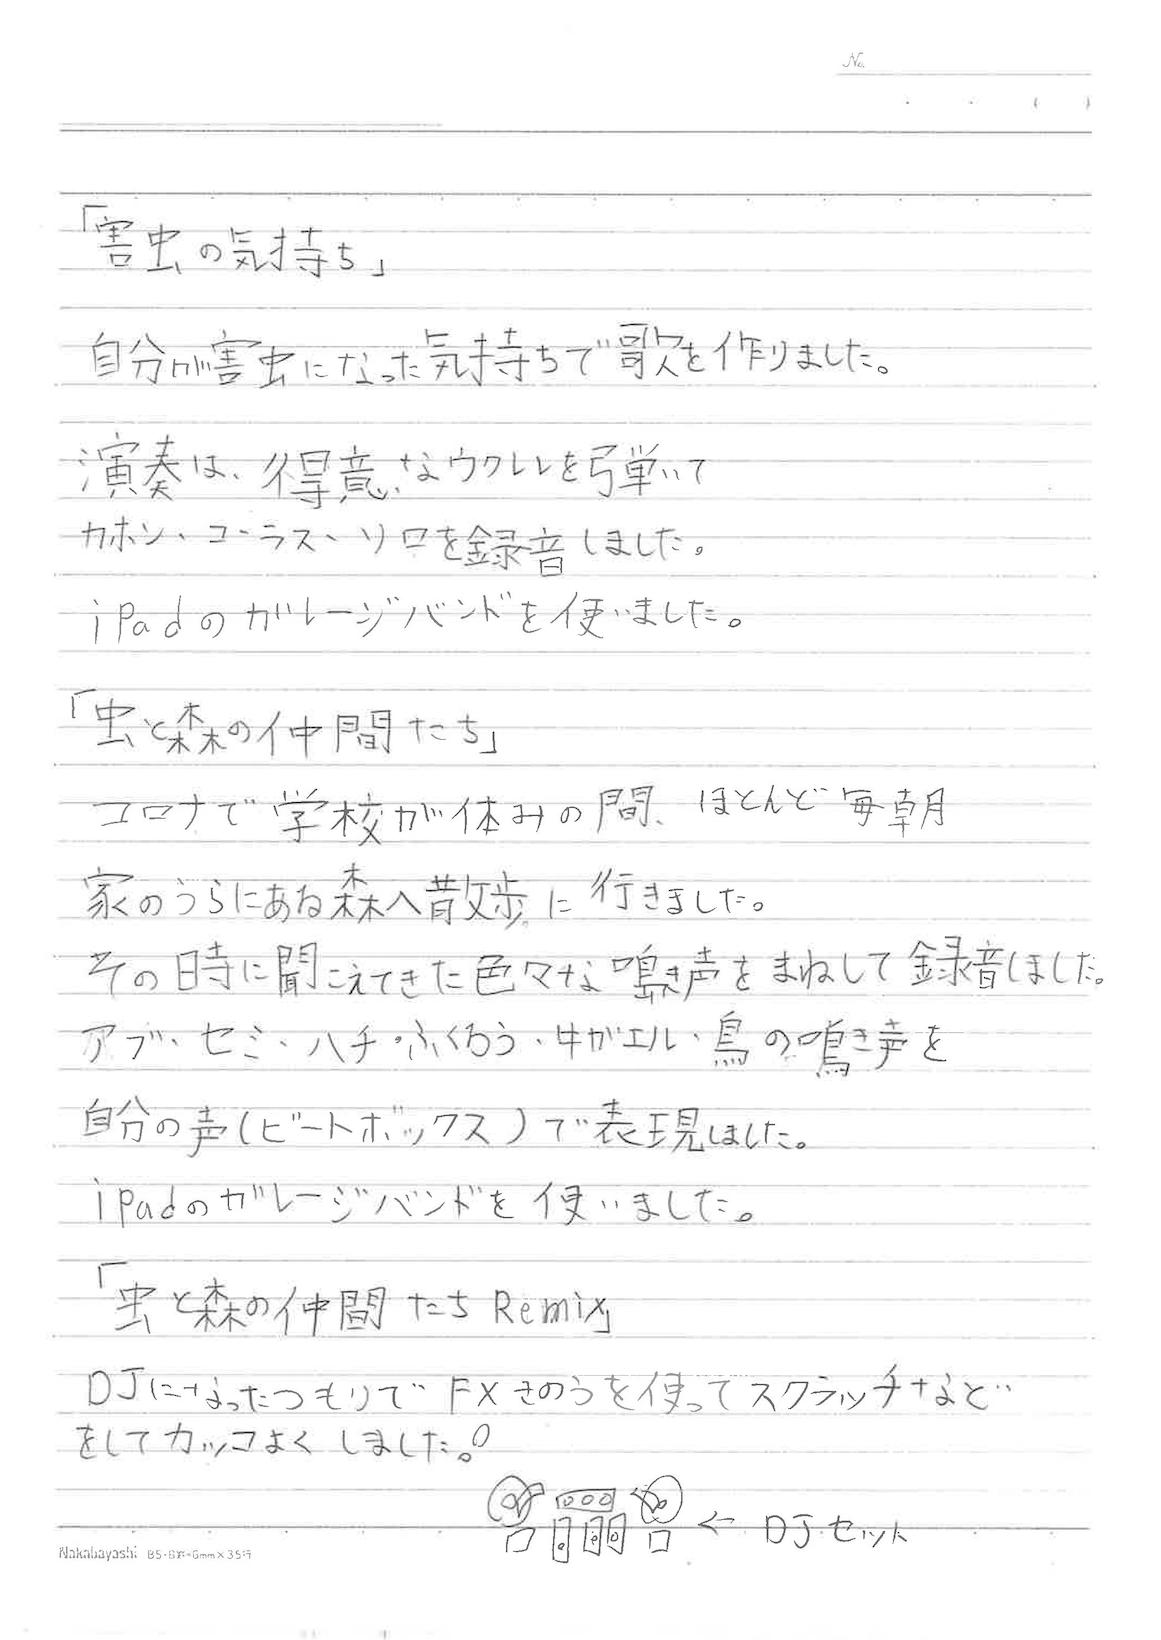 No.
. . ( )
「害虫の気持ち」
自分が害虫になった気持ちで歌を作りました。
演奏は、得意なウクレレを弾いて
カホン、コーラス、ソロを録音しました。
iPadのガレージバンドを使いました。
「虫と森の仲間たち」
コロナで学校が休みの間、ほとんど毎朝
家のうらにある森へ散歩に行きました。
その時に聞こえてきた色々な鳴き声をまねして録音しました。
アブ・セミ・ハチ・ふくろう・牛ガエル・鳥の鳴き声を
自分の声(ビートボックス)で表現しました。
iPadのガレージバンドを使いました。
「虫と森の仲間たち Remix」
DJになったつもりで FXきのうを使ってスクラッチなど
をしてカッコよく しました。
← DJセット
Nakabayashi B5・B罫・6mm×35行